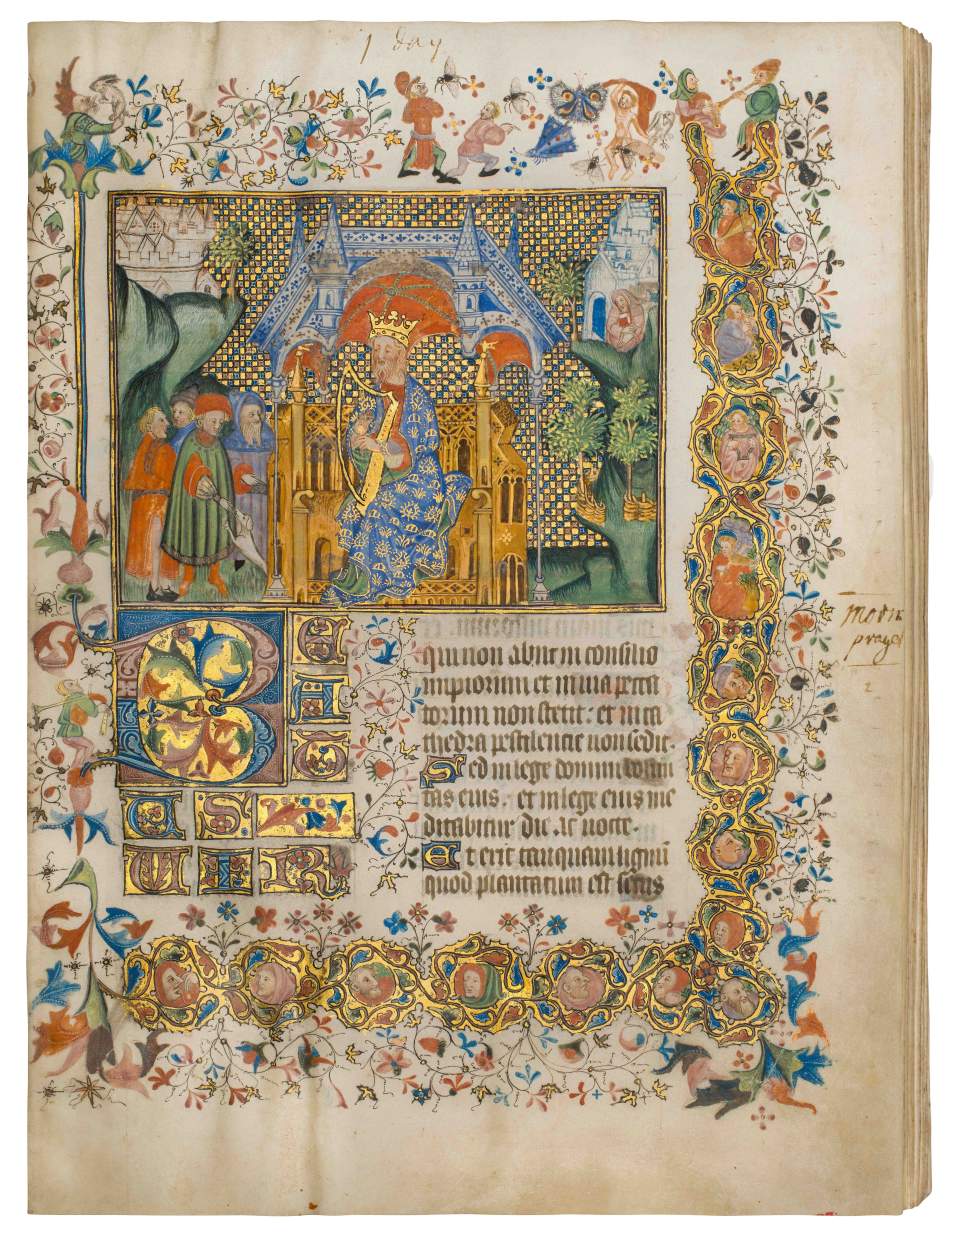 1 day
BE
A
T
US
VIR
qui non abiit in consilio
impiorum et in uia pecca
torum non stetit: et in ca
thedra pestilentie non sedit.
Sed in lege domini volun
tas eius: et in lege eius me
ditabitur die ac nocte.
Et erit tanquam lignū
quod plantatum est secus
prayer
2